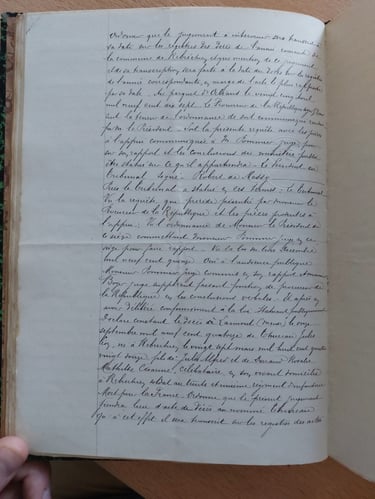 ordonner que le jugement à intervenir sera transcrit à
sa date sur les registres des décès de l'année courante de
la commune de Rebréchien, que mention de ce jugement
et de sa transcription sera faite à la date du décès sur les registres
de l'année correspondante, en marge de l'acte le plus rapproché
par sa date. Au parquet d'Orléans le vingt cinq
mil neuf cent dix sept. Le Procureur de la République.
la teneur de l'ordonnance de soit communiqué rendue
par M. le Président. Soit la présente requête avec les pièces
à l'appui communiquée à M. Pommier juge pour
sur son rapport et les conclusions du ministère public
être statué ce qu'il appartiendra. Le Président du
Tribunal signé Robert de Massy
Puis le Tribunal a statué en ces termes: Le Tribunal
Vu la requête que précède présentée par Monsieur le
Procureur de la République et les pièces produites à
l'appui. Vu l'ordonnance de Monsieur le Président de
ce siège commettant Monsieur Pommier juge en ce
siège pour faire rapport. Vu la loi du trois Décembre
mil neuf cent quinze. Oui à l'audience publique
Monsieur Pommier juge commis en son rapport, Monsieur
juge suppléant faisant fonctions de procureur de
la République en ses conclusions verbales. Et après en
avoir délibéré conformément à la loi. Statuant publiquement
Déclare constant le décès à (Meuse) le onze
septembre mil neuf cent quatorze de Thureau Jules
né à Rebréchien, le vingt sept mars mil huit cent quatre
vingt onze, fils de Jules Alfred et de Rosalie
Mathilde célibataire, en son vivant domicilié
à Rebréchien, soldat au trente et unième régiment d'infanterie
Mort pour la France. Ordonne que le présent jugement
tiendra lieu d'acte de décès au nommé Thureau
Qu'à cet effet il sera transcrit sur les registres des actes